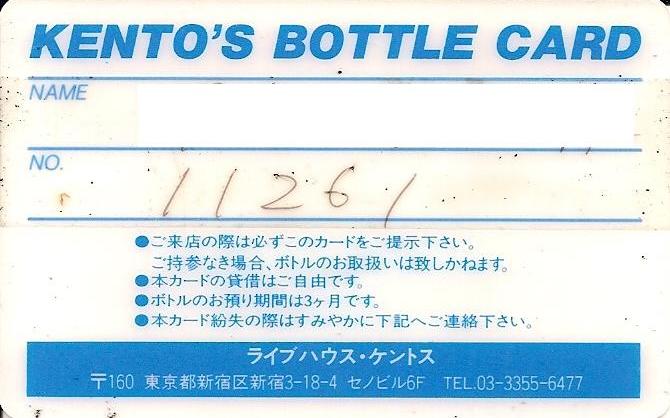 KENTO'S BOTTLE CARD
NAME
NO.
11261
●ご来店の際は必ずこのカードをご提示下さい。
ご持参なき場合、ボトルのお取扱いは致しかねます。
●本カードの貸借はご自由です。
●ボトルのお預り期間は3ヶ月です。
●本カード紛失の際はすみやかに下記へご連絡下さい。
ライブハウス・ケントス
〒160 東京都新宿区新宿3-18-4 セノビル6F TEL.03-3355-6477